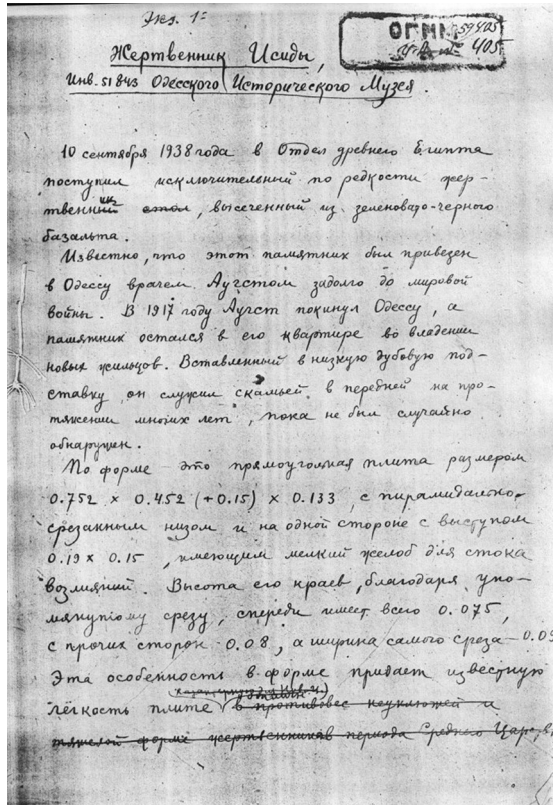 Экз. 1й
ОГИМ 59405
405
Жертвенник Исиды,
Инв. 51843 Одесского Исторического Музея.
10 сентября 1938 года в Отдел древнего Египта
поступил исключительный по редкости жер-
твенник стол, высеченный из зеленовато-черного
базальта.
Известно, что этот памятник был привезен
в Одессу врачем Аугстом задолго до мировой
войны. В 1917 году Аугст покинул Одессу, а
памятник остался в его квартире во владении
новых жильцов. Вставленный в низкую дубовую под-
ставку, он служил скамьей в передней на про-
тяжении многих лет, пока не был случайно
обнаружен.
По форме это прямоугольная плита размером
0.752 × 0.452 (+0.15) × 0.133, с пирамидально
срезанным низом и на одной стороне с выступом
0.19 × 0.15, имеющим мелкий желоб для стока
возлияний. Высота его краев, благодаря упо-
мянутому срезу, спереди имеет всего 0.075,
с прочих сторон 0.08, а ширина самого среза – 0.09
Эта особенность в форме придает известную
лёгкость плите в противовес неуклюжей и
тяжелой форме жертвенников периода Среднего Царств